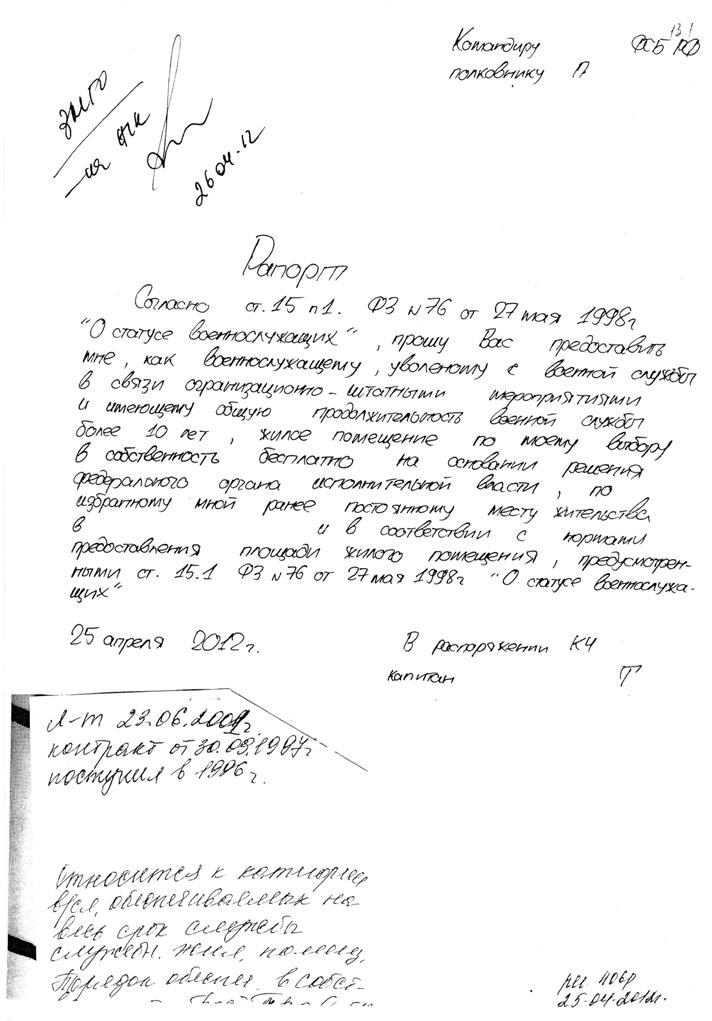 131
Командиру ФСБ РФ
полковнику П
26.04.12
Рапорт
Согласно ст. 15 п1. ФЗ N76 от 27 мая 1998г
"О статусе военнослужащих", прошу Вас предоставить
мне, как военнослужащему, уволеному с военной службы
в связи огранизационно-штатными мероприятиями
и имеющему общую продолжительность военной службы
более 10 лет, жилое помещение по моему выбору
в собственность бесплатно на основании решения
федерального органа исполнительной власти, по
избранному мной ранее постоянному месту жительства
в и в соответствии с нормами
предоставления площади жилого помещения, предусмотрен-
ными ст. 15.1 ФЗ N76 от 27 мая 1998г "О статусе военнослужа-
щих"
25 апреля 2012г. В распоряжении КЧ
капитан Т
Л-т 23.06.2001г.
контракт от 30.09.1997г
поступил в 1996г.
Относится к категории
в/сл, обеспечиваемых на
весь срок службы
служебн. жил. помещ.
Порядок обеспеч. в собст-
рег 406р
25.04.2012г.